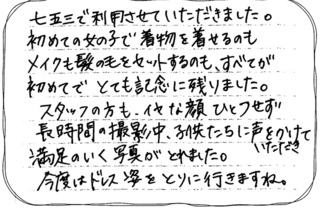 七五三で利用させていただきました。
初めての女の子で着物を着せるのも
メイクも髪の毛をセットするのも、すべてが
初めてでとても記念に残りました。
スタッフの方も、イヤな顔ひとつせず
長時間の撮影中、子供たちに声をかけて
いただき
満足のいく写真がとれました。
今度はドレス姿をとりに行きますね。